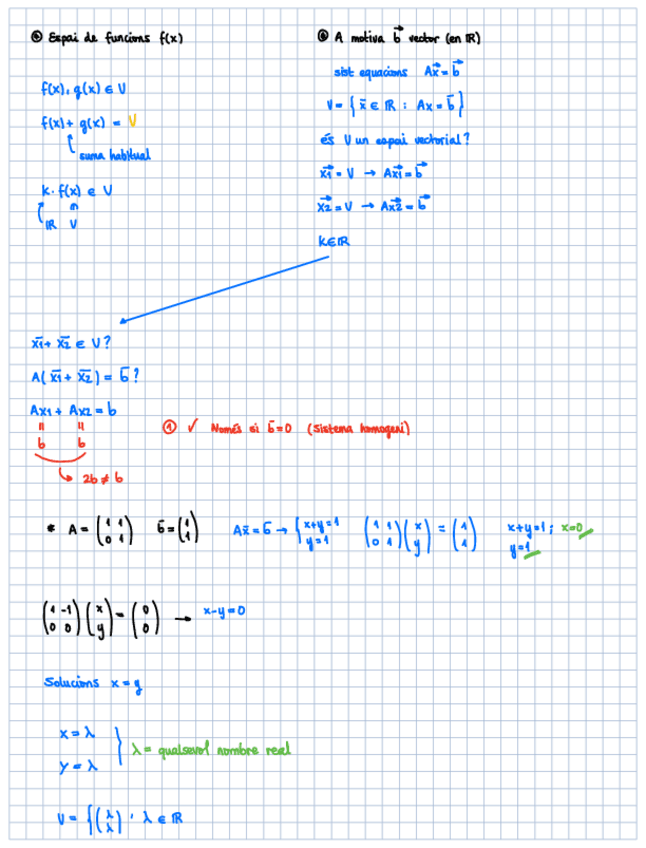 ② Espai de funcions f(x)
f(x), g(x) ∈ V
f(x) + g(x) = V
suma habitual
k · f(x) ∈ V
IR V
③ A motiva b⃗ vector (en IR)
sist equacions Ax⃗ = b⃗
V = { x̄ ∈ IR : Ax = b̄ }
és V un espai vectorial?
x⃗1 = V → Ax⃗1 = b⃗
x⃗2 = V → Ax⃗2 = b⃗
K ∈ IR
x̄1 + x̄2 ∈ V?
A( x̄1 + x̄2 ) = b̄?
Ax1 + Ax2 = b
" "
b b
↳ 2b ≠ b
① ✓ Només si b̄=0 (Sistema homogeni)
* A = (1 1; 0 1) b̄ = (1; 1) Ax̄ = b̄ → { x+y=1; y=1 (1 1; 0 1)(x; y) = (1; 1) x+y=1; x=0
y=1
(1 -1; 0 0)(x; y) = (0; 0) → x-y=0
Solucions x = y
x = λ
y = λ
λ = qualsevol nombre real
V = { (λ; λ) , λ ∈ IR